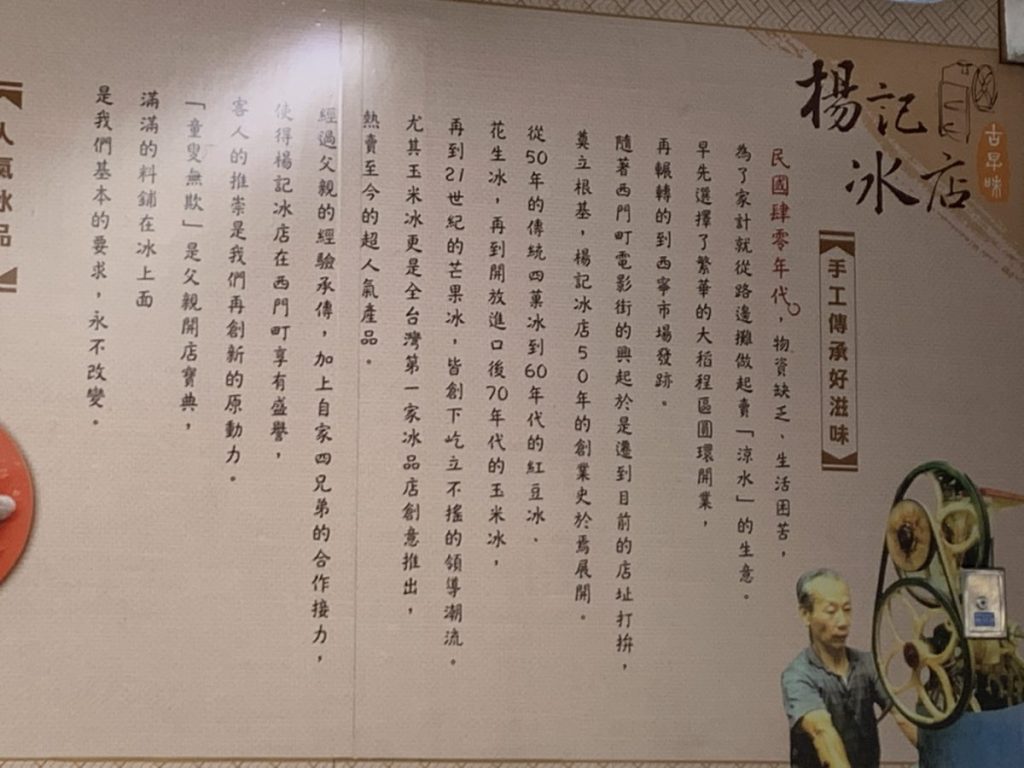 楊記
冰店
古早味
手工傳承好滋味
民國肆零年代，物資缺乏、生活困苦，
為了家計就從路邊攤做起賣「涼水」的生意。
早先選擇了繁華的大稻程區圓環開業，
再輾轉的到西寧市場發跡。
隨著西門町電影街的興起於是遷到目前的店址打拚，
奠立根基，楊記冰店50年的創業史於焉展開。
從50年的傳統四菓冰到60年代的紅豆冰、
花生冰，再到開放進口後70年代的玉米冰，
再到21世紀的芒果冰，皆創下屹立不搖的領導潮流。
尤其玉米冰更是全台灣第一家冰品店創意推出，
熱賣至今的超人氣產品。
經過父親的經驗承傳，加上自家四兄弟的合作接力，
使得楊記冰店在西門町享有盛譽，
客人的推崇是我們再創新的原動力。
「童叟無欺」是父親開店寶典，
滿滿的料鋪在冰上面
是我們基本的要求，永不改變。
人氣冰品